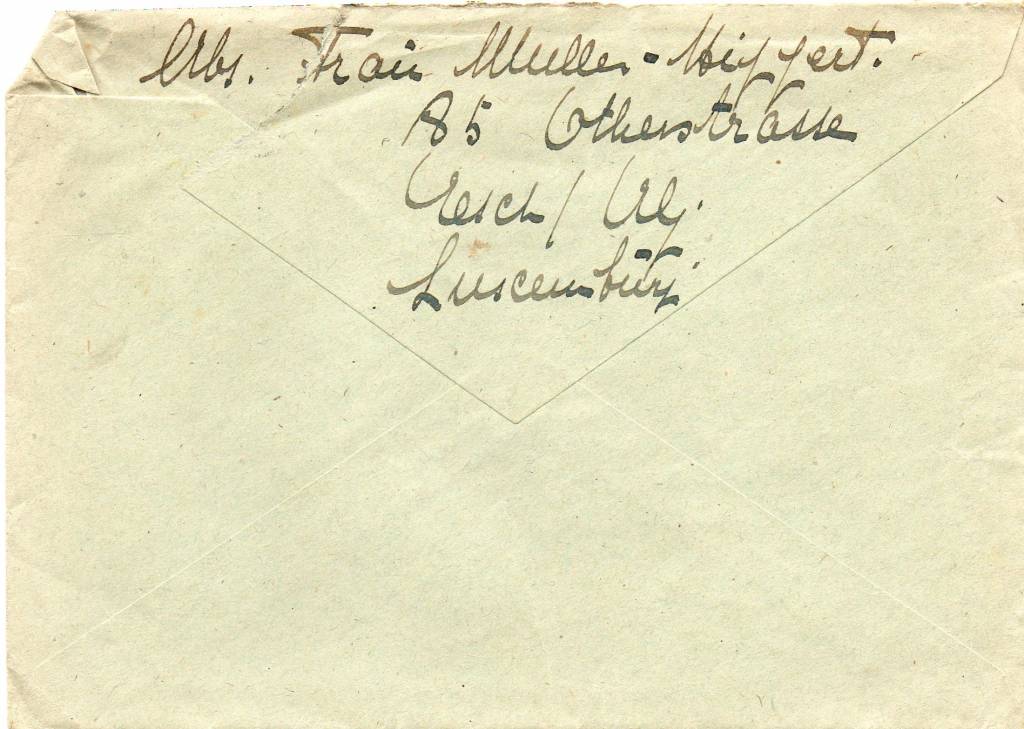 Abs. Frau Muller-Hippert.
85 Otherstrasse
Esch/Alz.
Luxemburg